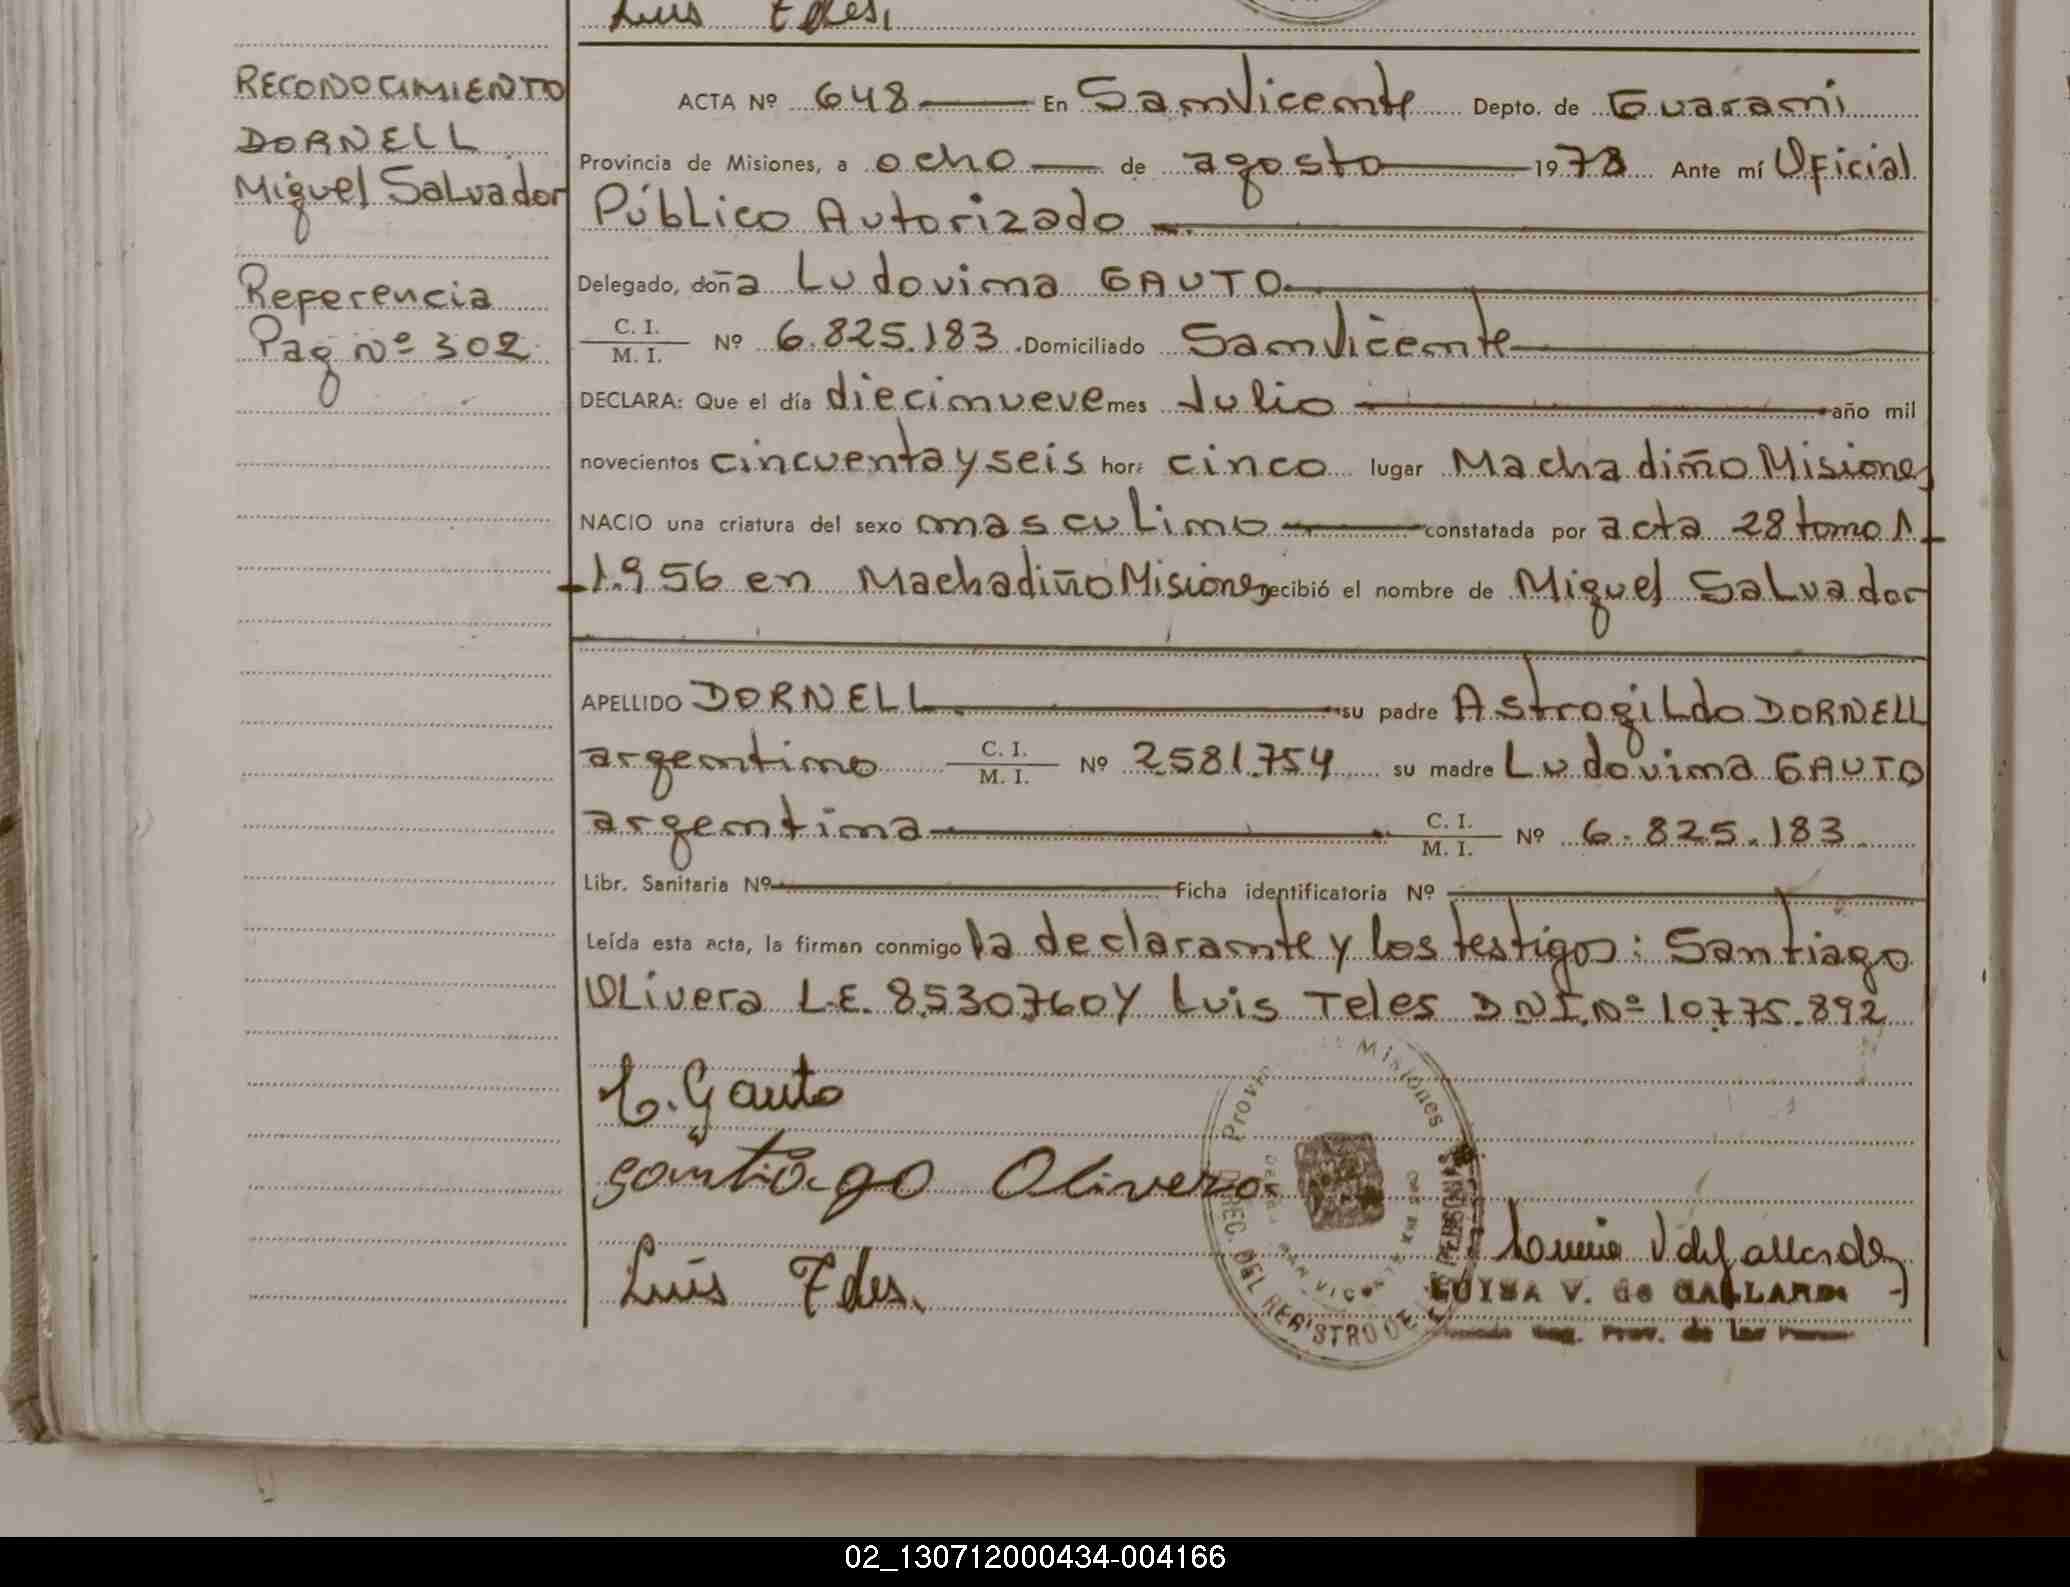 Luis
RECONOCIMIENTO
DORNELL
Miguel Salvador
Referencia
Pag Nº 302
ACTA Nº 648 En San Vicente Depto. de Guarani
Provincia de Misiones, a ocho de agosto 1978 Ante mí Oficial
Público Autorizado
Delegado, doña Ludovina GAUTO
C. I.
M. I. Nº 6.825.183 Domiciliado San Vicente
DECLARA: Que el día diecinueve mes Julio año mil
novecientos cincuenta y seis hora cinco lugar Machadiño Misiones
NACIO una criatura del sexo masculino constatada por acta 28 tomo 1
1.956 en Machadiño Misiones recibió el nombre de Miguel Salvador
APELLIDO DORNELL su padre Astrogildo DORNELL
argentino C. I. M. I. Nº 2.581.754 su madre Ludovina GAUTO
argentina C. I. M. I. Nº 6.825.183
Libr. Sanitaria Nº Ficha identificatoria Nº
Leída esta acta, la firman conmigo la declarante y los testigos: Santiago
Olivera L.E. 8.530.760 y Luis Teles D.N.I. Nº 10.775.892
L. Gauto
Santiago Olivera
Luis Teles.
Provincia de Misiones
DIREC. DEL REGISTRO DE LAS PERSONAS
SAN VICENTE
LUISA V. de GALLARDO
02_130712000434-004166